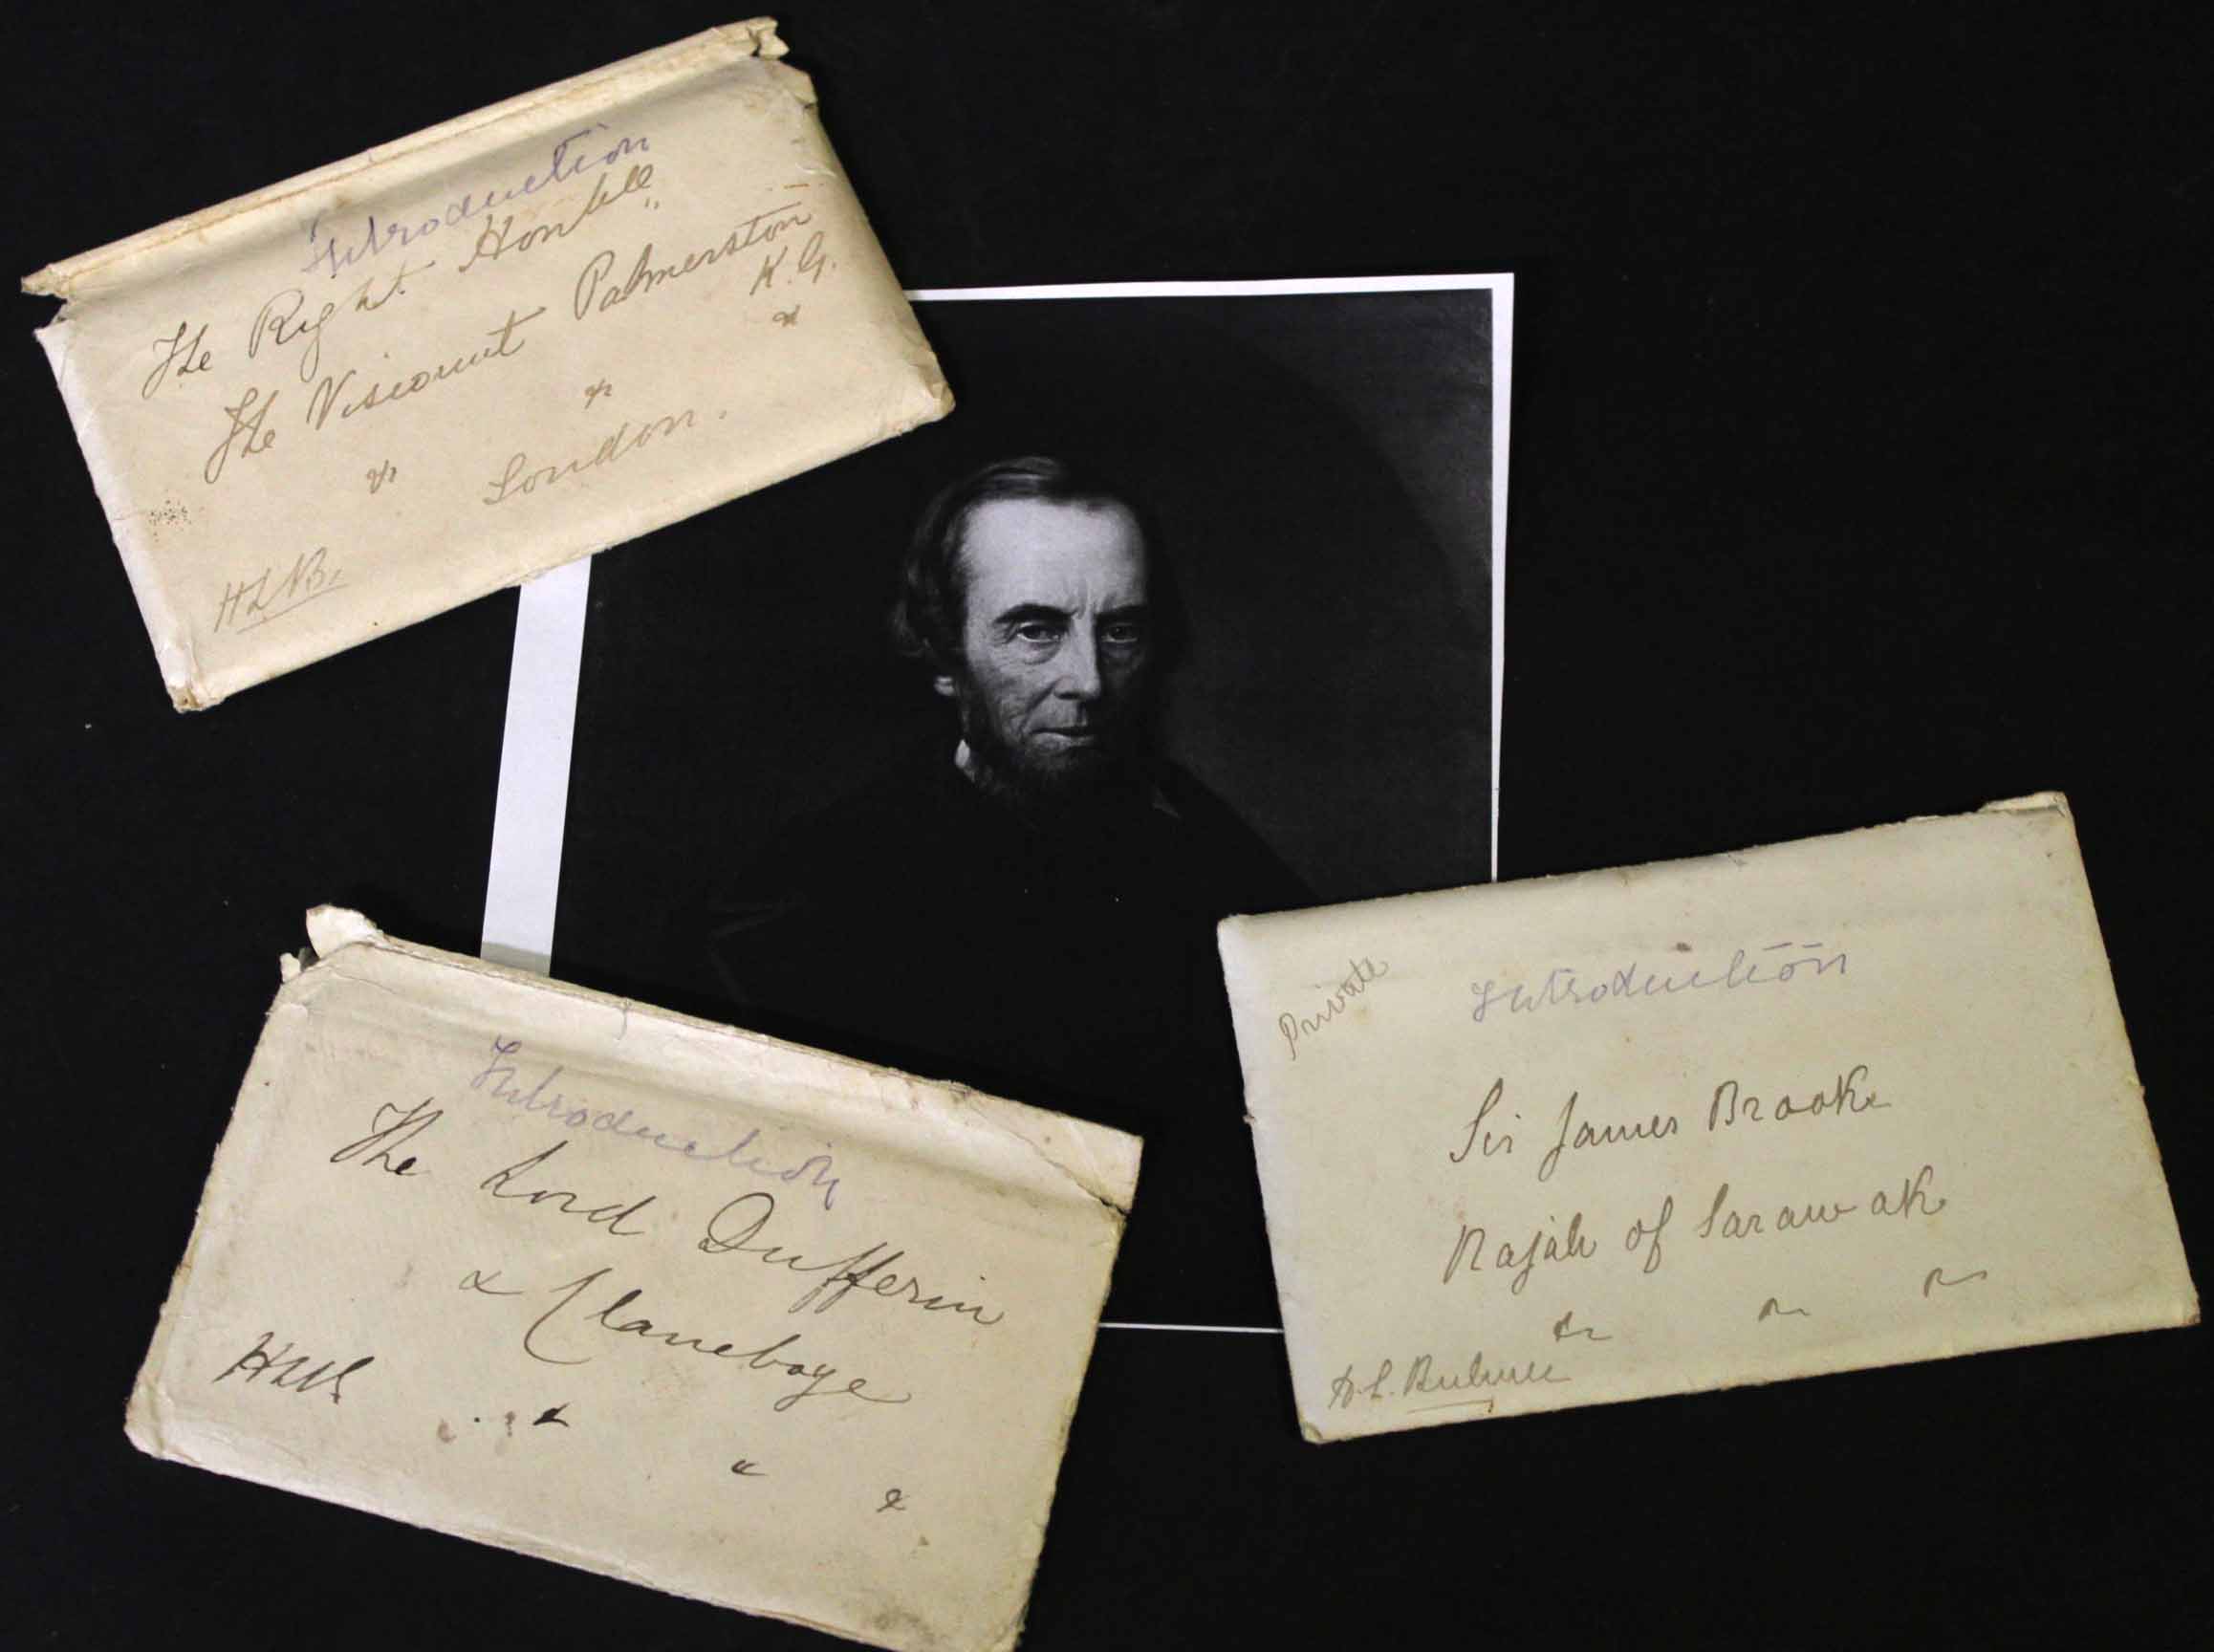 Introduction
The Right Honble
The Viscount Palmerston
K.G.
&
&
&
London.
H L B.
Introduction
The Lord Dufferin
& Claneboye
HLB
& & &
Private
Introduction
Sir James Brooke
Rajah of Sarawak
& & &
H. L. Bulwer